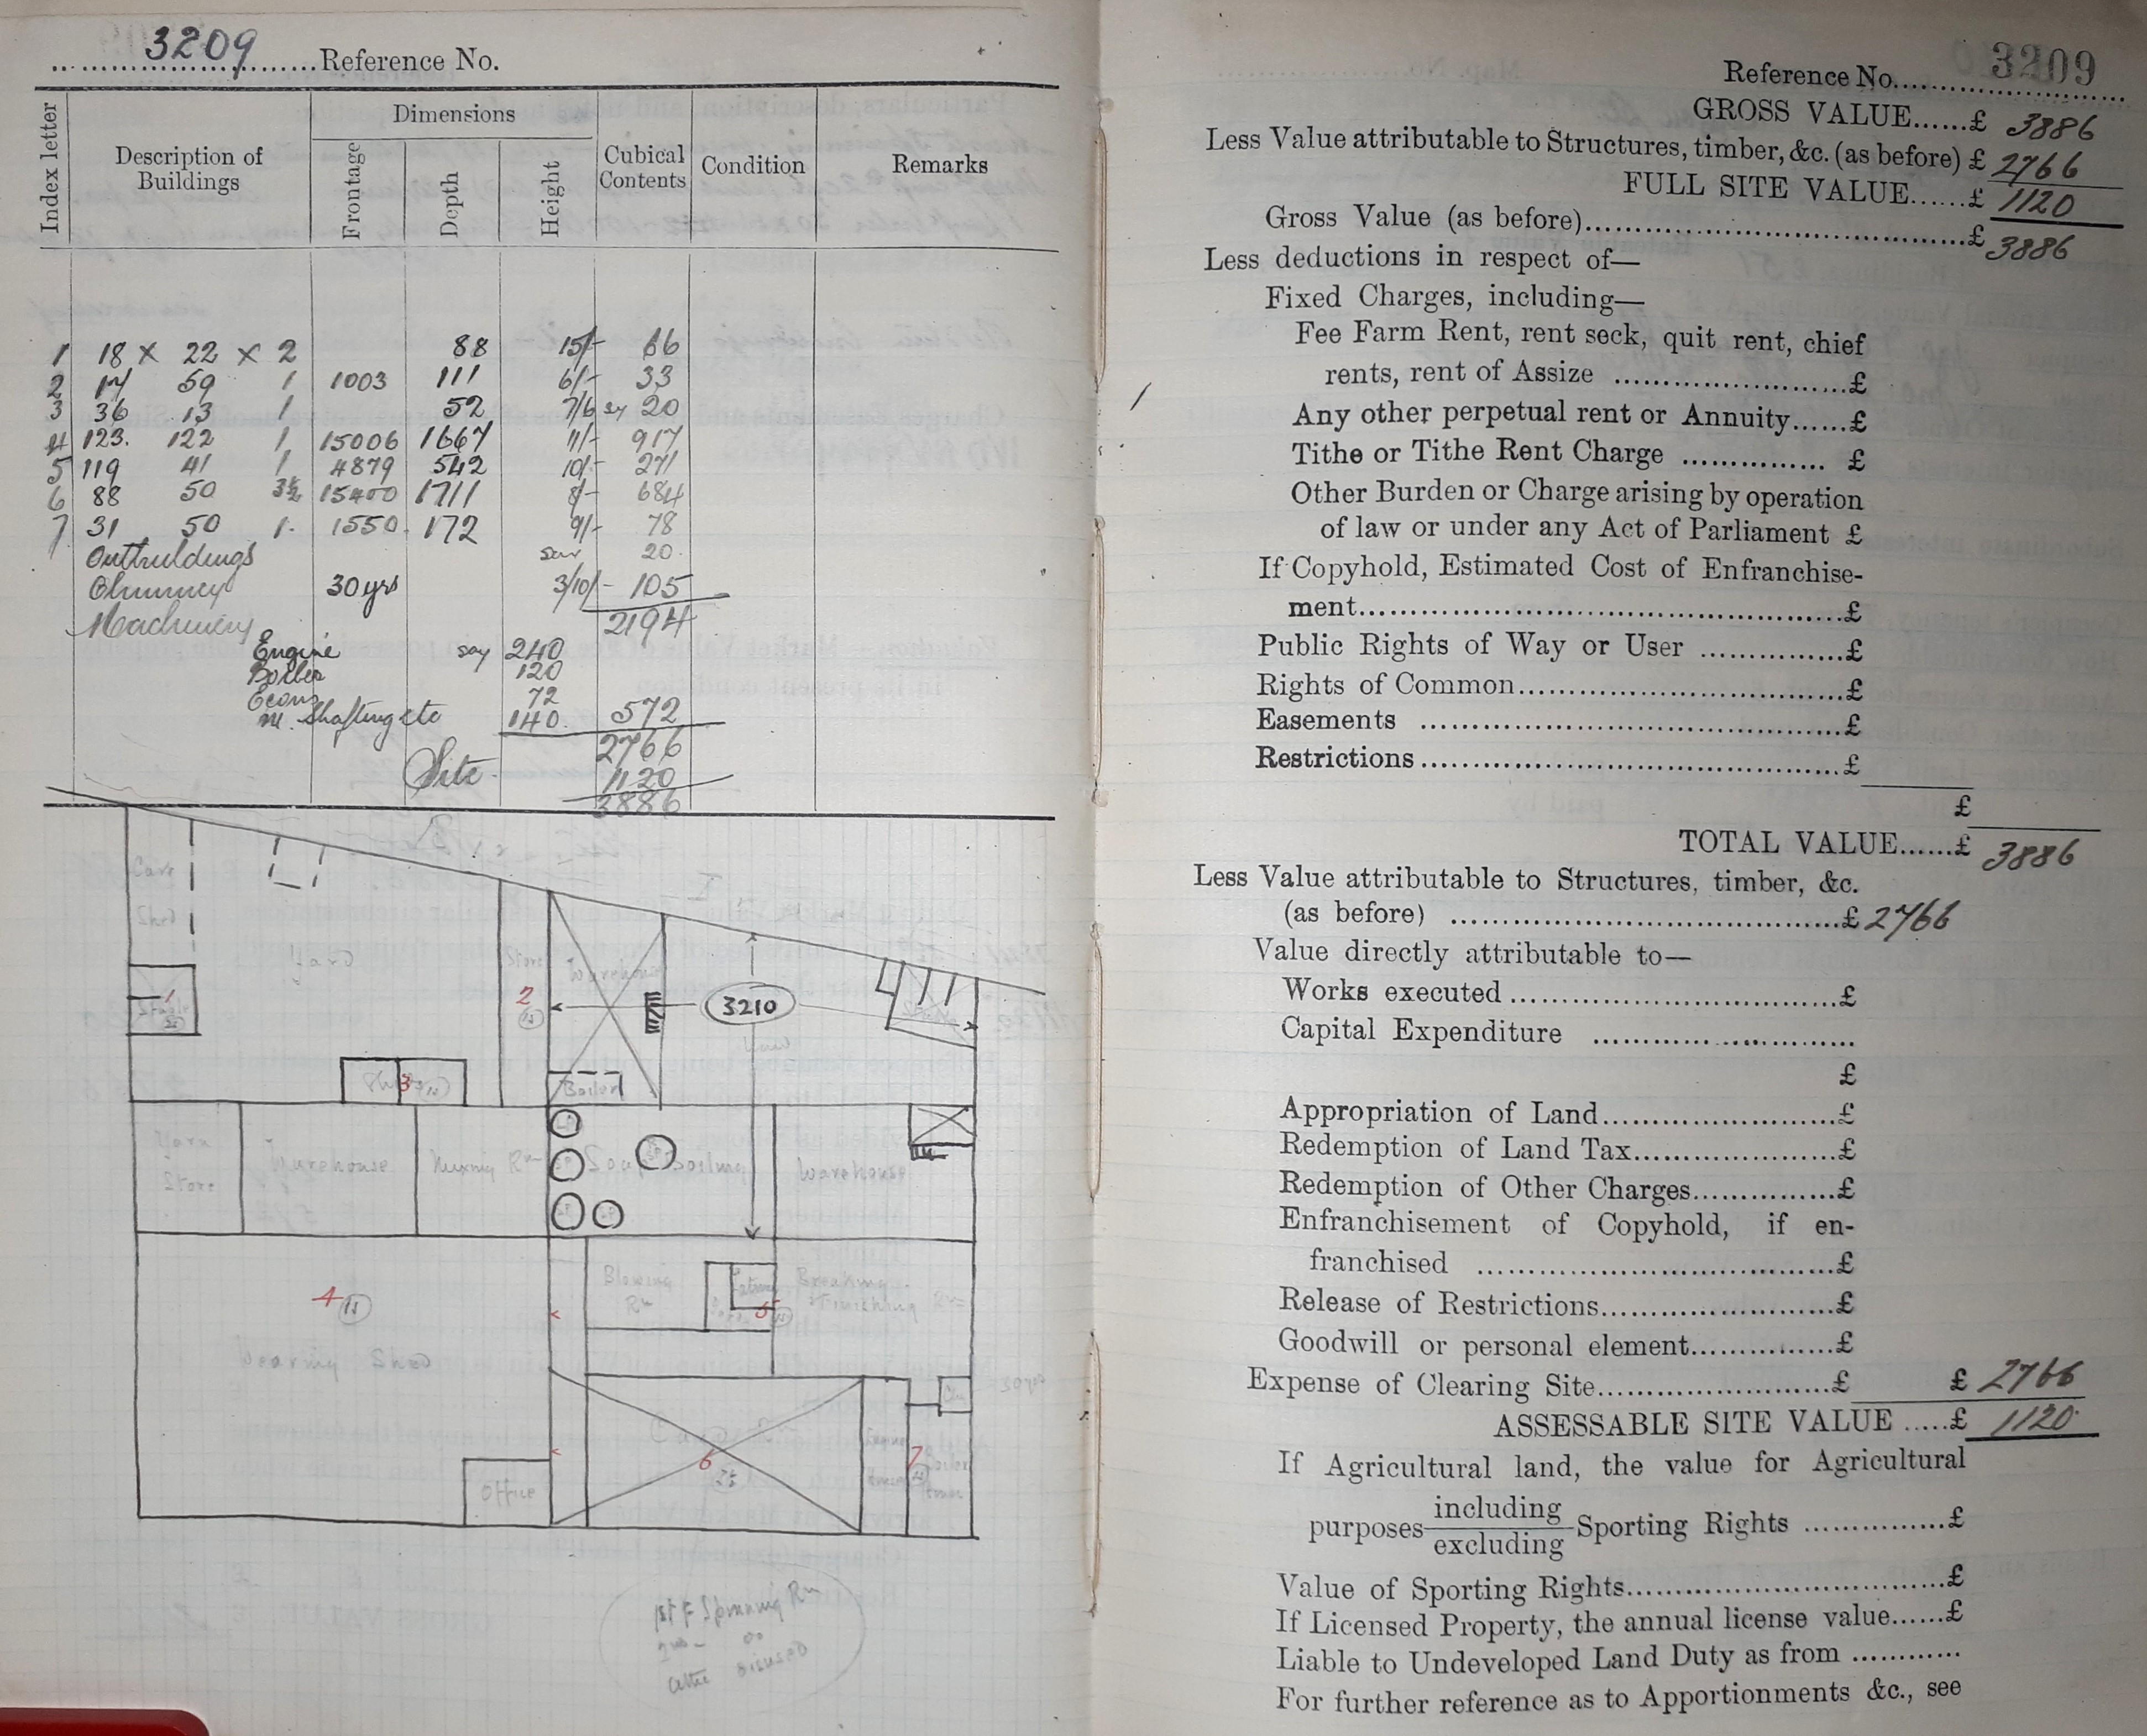 3209 Reference No.
Index letter
Description of Buildings
Dimensions
Frontage
Depth
Height
Cubical Contents
Condition
Remarks
1 18 × 22 × 2 88 15/- 66
2 17 59 1 1003 111 6/- 33
3 36 13 1 52 7/6 say 20
4 123. 122 1. 15006 1667 11/- 917
5 119 41 1 4879 542 10/- 271
6 88 50 3½ 15400 1711 8/- 684
7 31 50 1. 1550. 172 9/- 78
Outbuildings say 20
Chimney 30 yrs 3/10/- 105
2194
Machinery
Engine say 240
Boiler 120
Econ 72
M. Shafting etc 140. 572
2766
Site 1120
3886
Cart Shed
Yard
Store
2
Warehouse
1 Stable
3210
Yard
3
Boiler
Yarn Store
Warehouse
Mixing Rm
Soap Boiling
Warehouse
4
Blowing Rm
5
Breaking
Finishing
Weaving Shed
Office
6
7
Boiler
1st F Spinning Rm
2nd - Do
Attic Disused
Reference No. 3209
GROSS VALUE......£ 3886
Less Value attributable to Structures, timber, &c. (as before) £ 2766
FULL SITE VALUE......£ 1120
Gross Value (as before)......£ 3886
Less deductions in respect of—
Fixed Charges, including—
Fee Farm Rent, rent seck, quit rent, chief
rents, rent of Assize ......£
Any other perpetual rent or Annuity......£
Tithe or Tithe Rent Charge ...... £
Other Burden or Charge arising by operation
of law or under any Act of Parliament £
If Copyhold, Estimated Cost of Enfranchise-
ment......£
Public Rights of Way or User ......£
Rights of Common......£
Easements ......£
Restrictions......£
£
TOTAL VALUE......£ 3886
Less Value attributable to Structures, timber, &c.
(as before) ......£ 2766
Value directly attributable to—
Works executed ......£
Capital Expenditure ......
£
Appropriation of Land......£
Redemption of Land Tax......£
Redemption of Other Charges......£
Enfranchisement of Copyhold, if en-
franchised ......£
Release of Restrictions......£
Goodwill or personal element......£
Expense of Clearing Site......£ £ 2766
ASSESSABLE SITE VALUE .....£ 1120
If Agricultural land, the value for Agricultural
purposes including excluding Sporting Rights ......£
Value of Sporting Rights......£
If Licensed Property, the annual license value......£
Liable to Undeveloped Land Duty as from ......
For further reference as to Apportionments &c., see